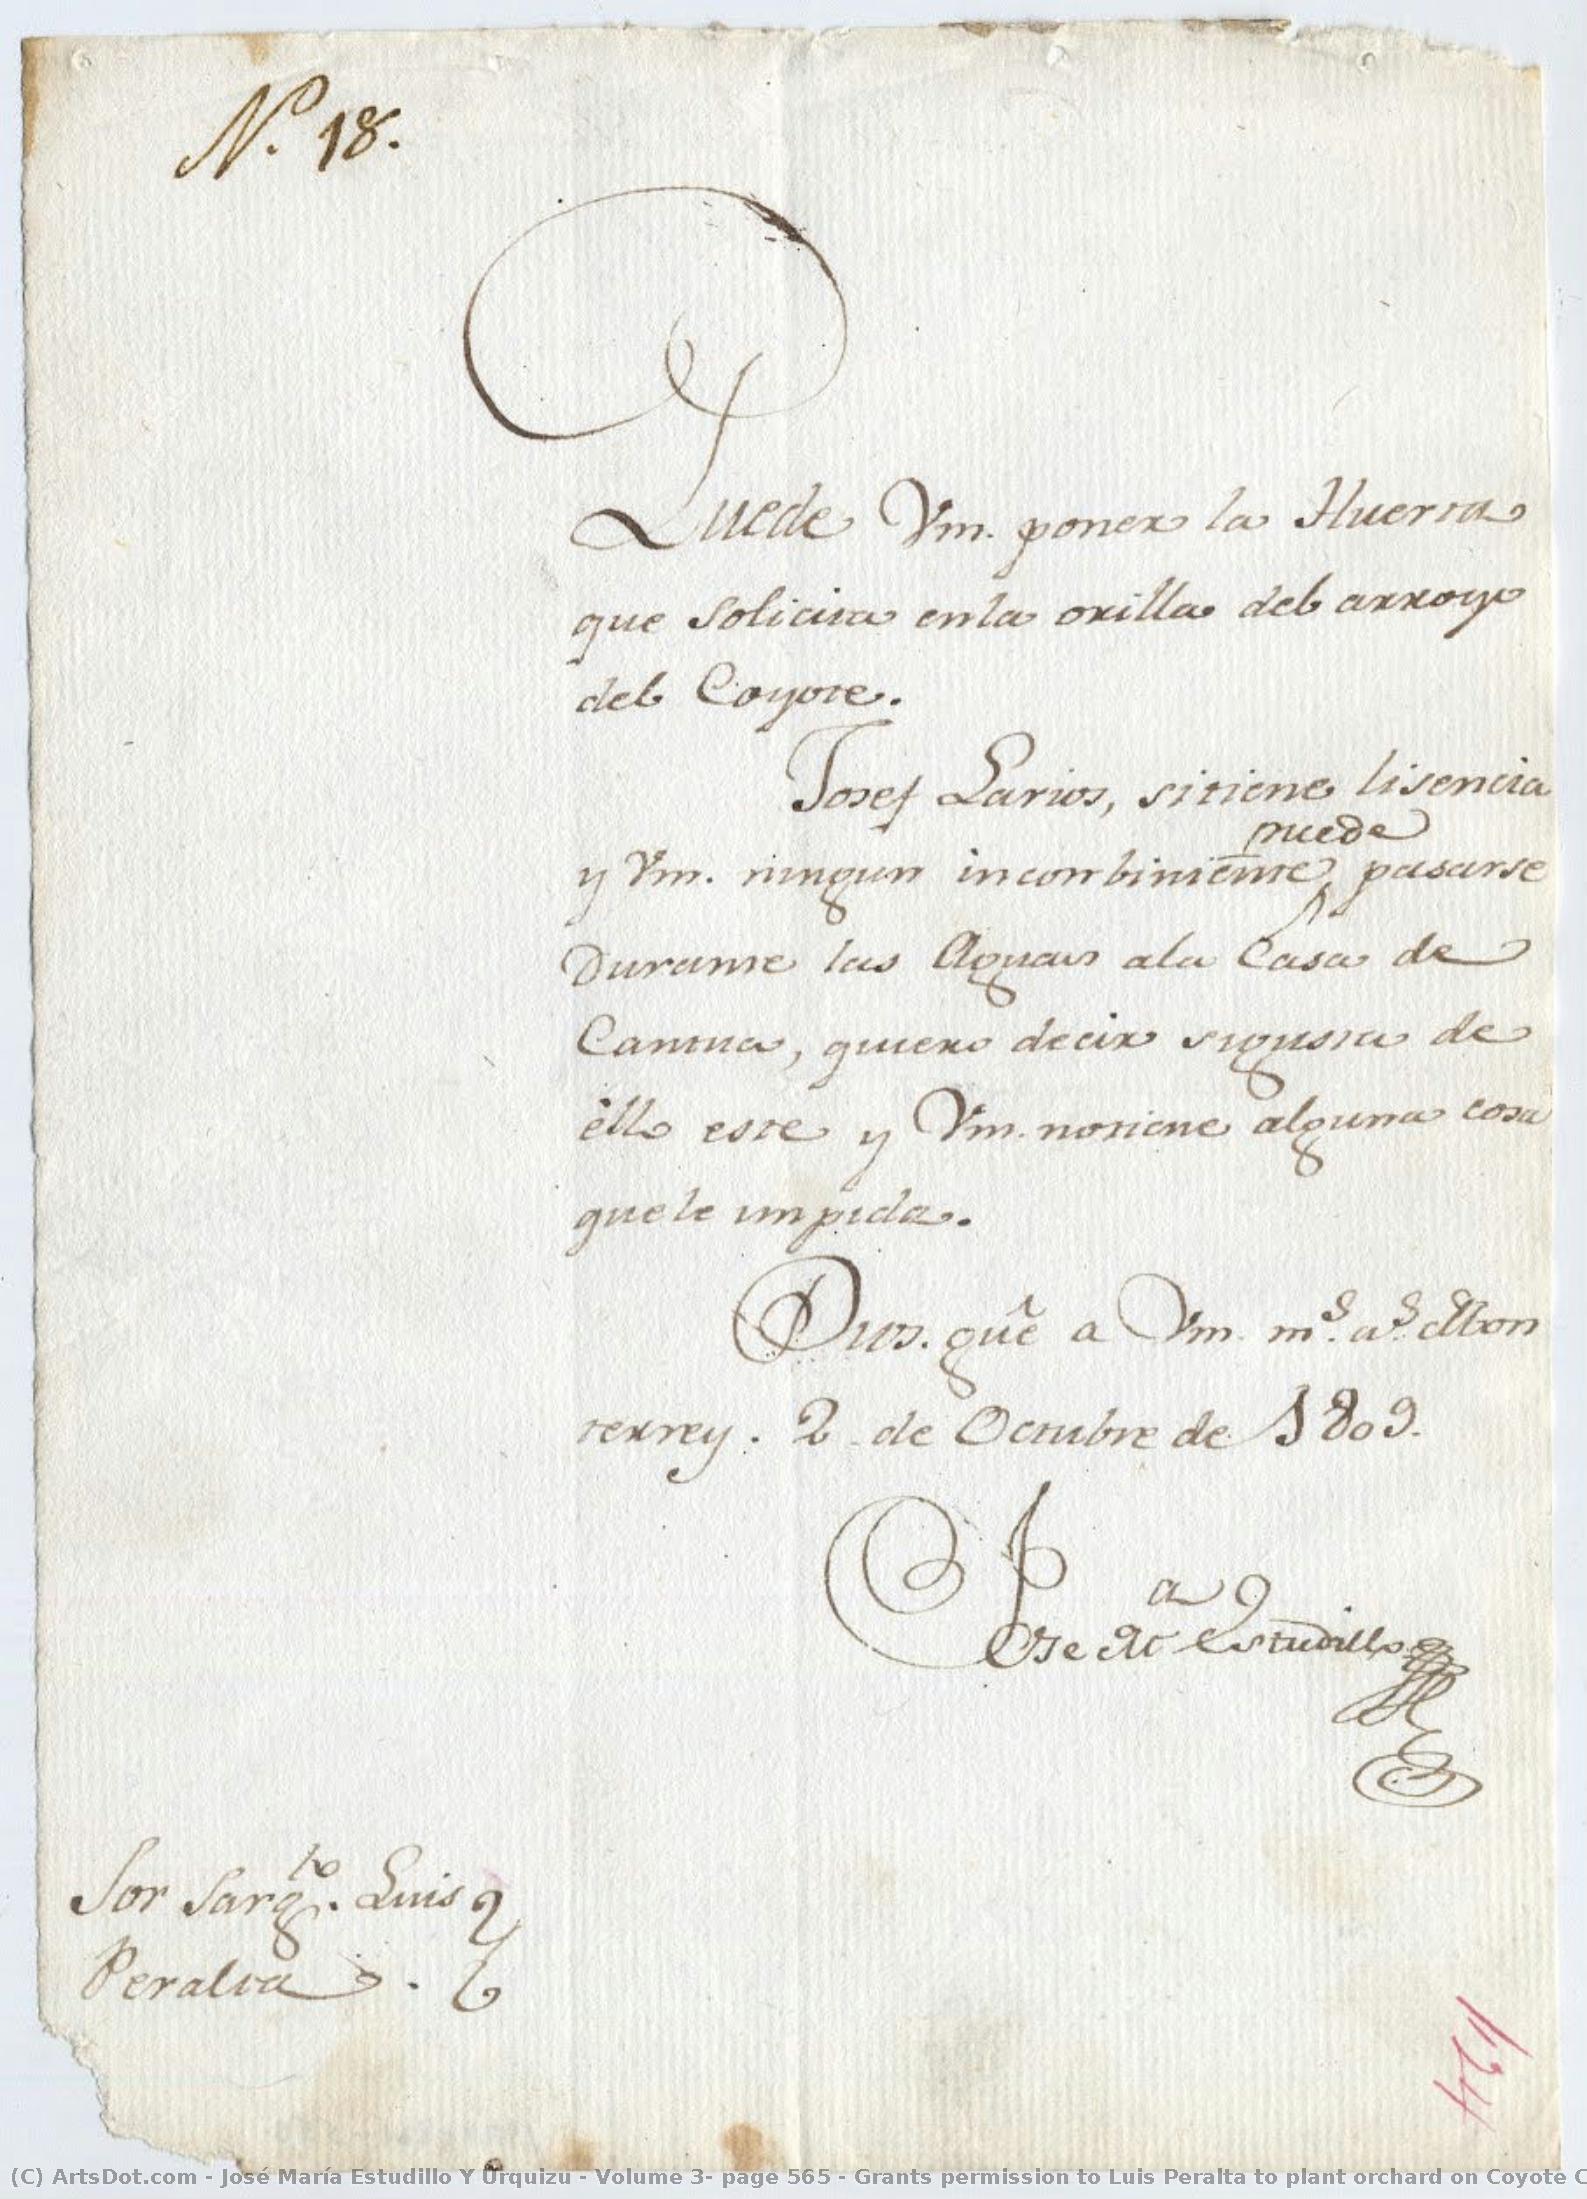 N.o 18.
Puede Vm. poner la Huerta
que solicita enla orilla del arroyo
del Coyote.
Josef Larios, sitiene lisencia
puede
y Vm. ningun inconbiniente, pasarse
Durante las Aguas ala Casa de
Cantua, quiero decir sigusta de
ello este y Vm. notiene alguna cosa
quele impida.
Dios. gûe a Vm. m.s a.s Mon
terrey. 2 de Octubre de 1809.
Jose M.a Estudillo
Sor Sarg.to Luis
Peralta.
464
(C) ArtsDot.com - José María Estudillo Y Urquizu - Volume 3- page 565 - Grants permission to Luis Peralta to plant orchard on Coyote C